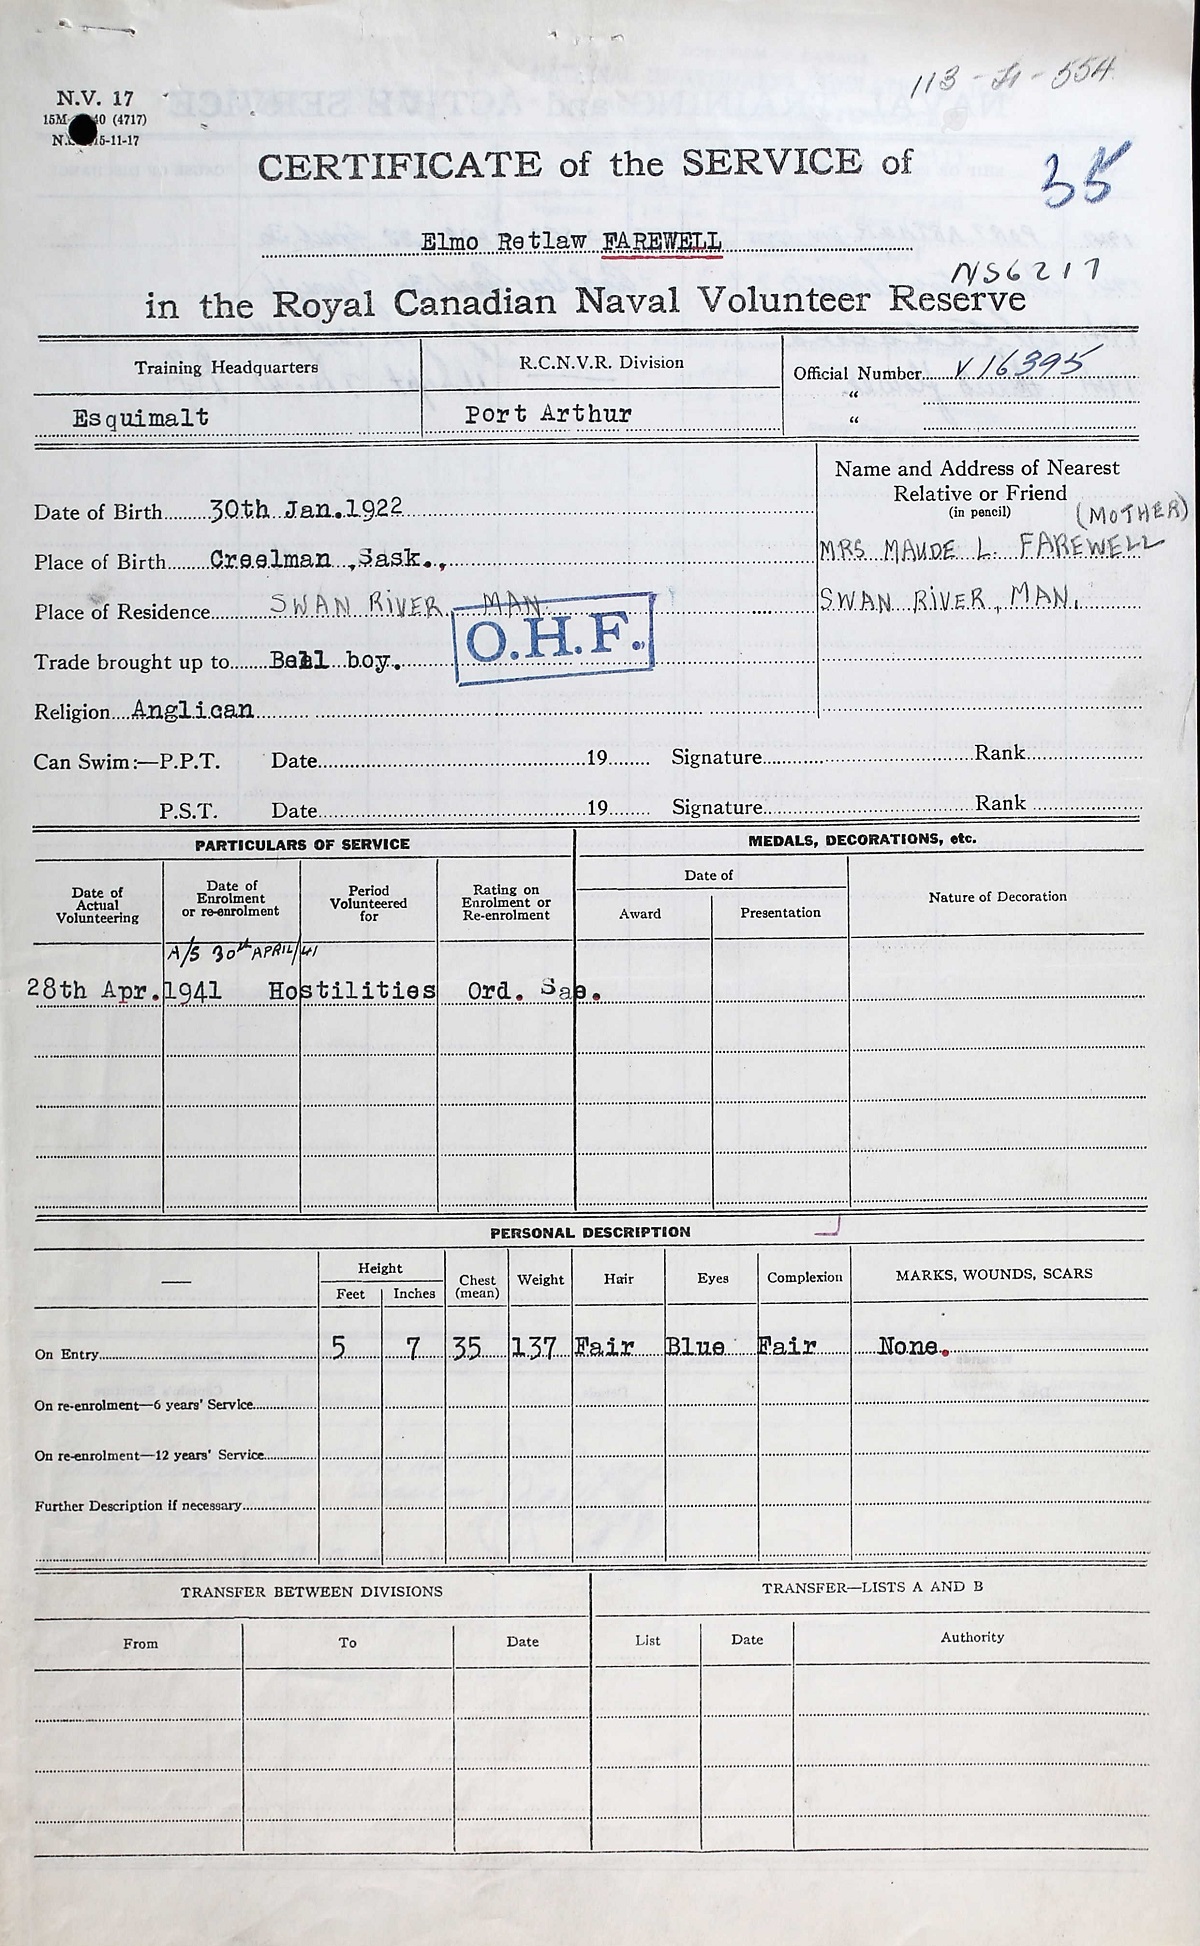 113-H-554
N.V. 17
15M- 40 (4717)
N. 15-11-17
CERTIFICATE of the SERVICE of
35
Elmo Retlaw FAREWELL
NS6217
in the Royal Canadian Naval Volunteer Reserve
Training Headquarters R.C.N.V.R. Division Official Number V 16395
“
Esquimalt Port Arthur “
Name and Address of Nearest
Relative or Friend
(in pencil) (MOTHER)
Date of Birth 30th Jan.1922
MRS MAUDE L. FAREWELL
Place of Birth Creelman ,Sask.,
Place of Residence SWAN RIVER MAN. SWAN RIVER, MAN.
O.H.F.
Trade brought up to Bell boy.
Religion Anglican
Can Swim:—P.P.T. Date 19 Signature Rank
P.S.T. Date 19 Signature Rank
PARTICULARS OF SERVICE MEDALS, DECORATIONS, etc.
Date of Actual Volunteering Date of Enrolment or re-enrolment Period Volunteered for Rating on Enrolment or Re-enrolment Date of Nature of Decoration
Award Presentation
A/S 30th APRIL/41
28th Apr. 1941 Hostilities Ord. Sea.
PERSONAL DESCRIPTION
— Height Chest (mean) Weight Hair Eyes Complexion MARKS, WOUNDS, SCARS
Feet Inches
On Entry 5 7 35 137 Fair Blue Fair None.
On re-enrolment—6 years' Service
On re-enrolment—12 years' Service
Further Description if necessary
TRANSFER BETWEEN DIVISIONS TRANSFER—LISTS A AND B
From To Date List Date Authority